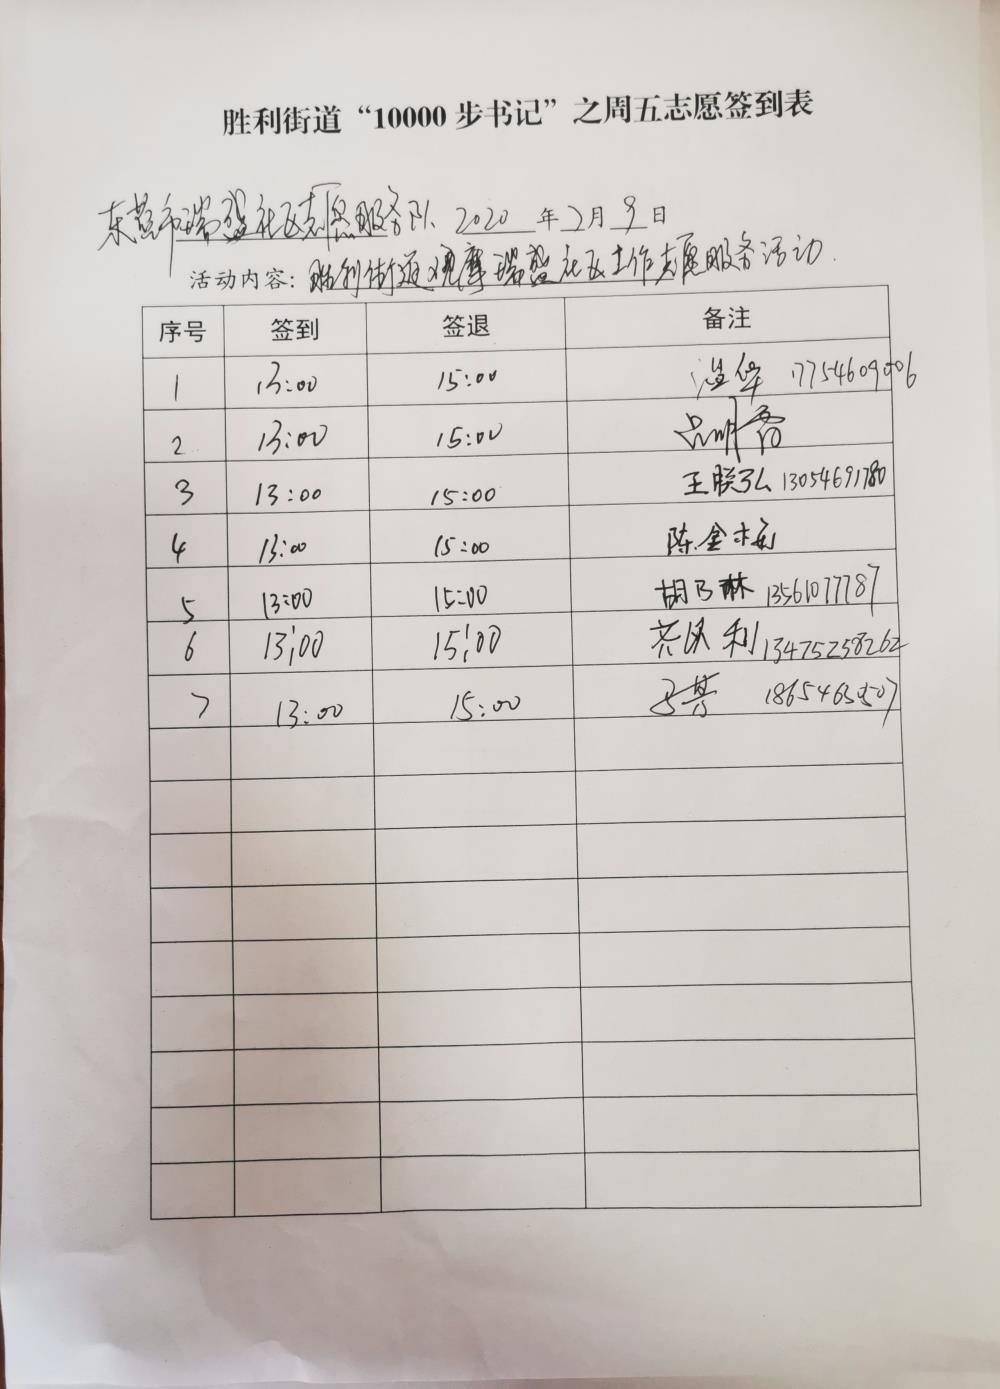 胜利街道“10000步书记”之周五志愿签到表
东营市瑞盛社区志愿服务队 2020年2月9日
活动内容：胜利街道观摩瑞盛社区工作志愿服务活动.
序号 签到 签退 备注
1 13:00 15:00
2 13:00 15:00
3 13:00 15:00 王联弘 13054691780
4 13:00 15:00 陈金梅
5 13:00 15:00 胡乃琳 13561077787
6 13:00 15:00 13475258262
7 13:00 15:00